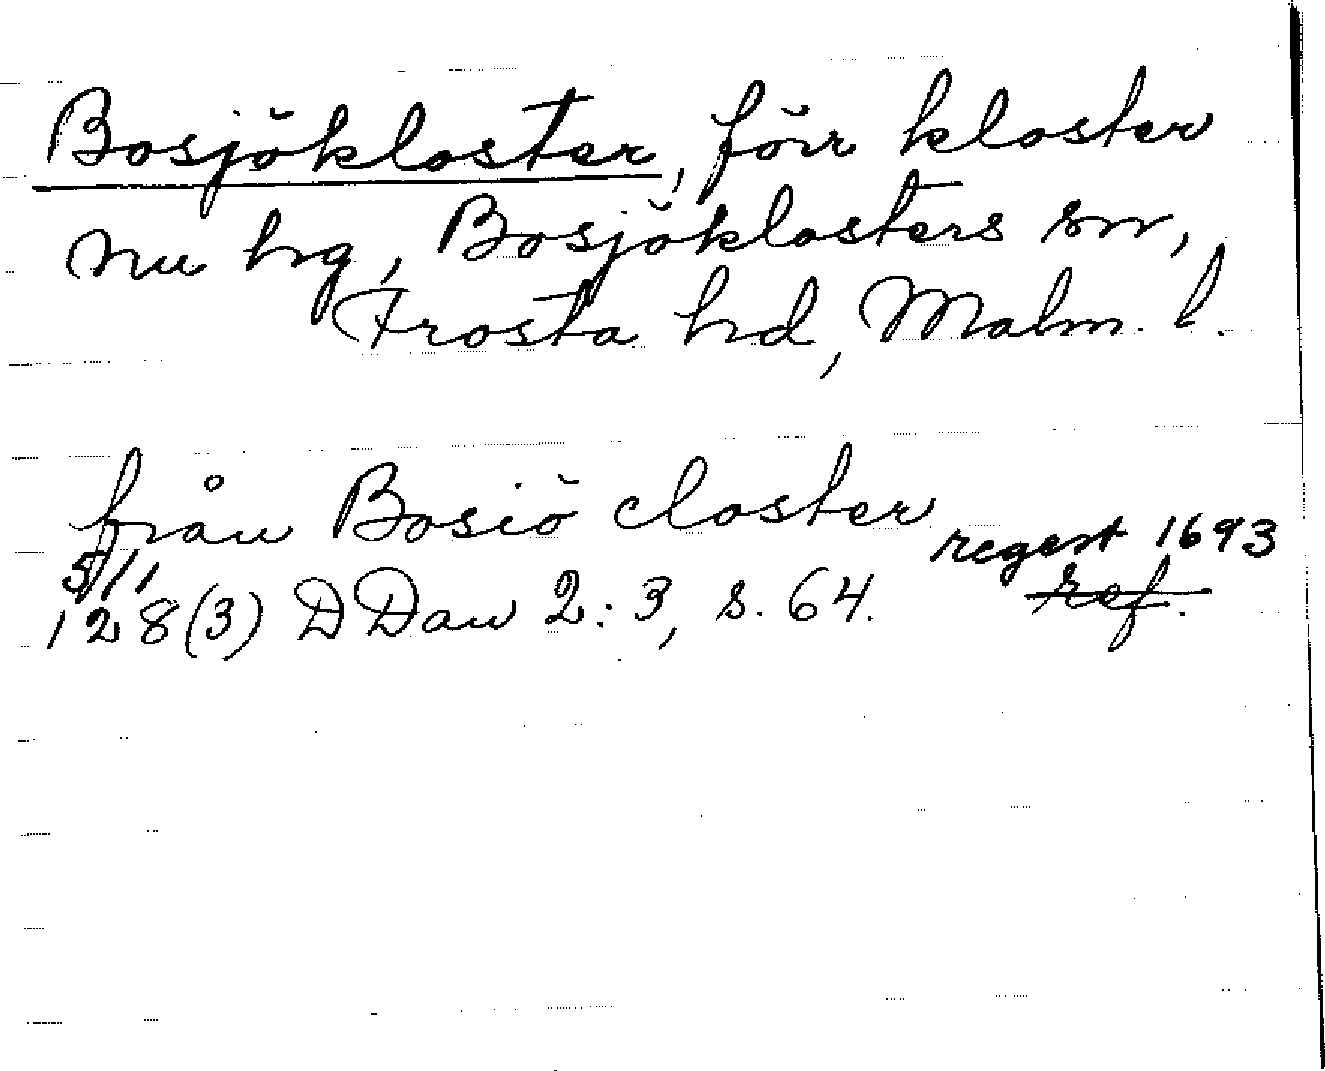 Bosjökloster, förr kloster
nu hg, Bosjöklosters sn,
Frosta hd, Malm. l.
från Bosiö closter
regest 1693
5/11
128(3) DDan 2:3, s. 64. ref.